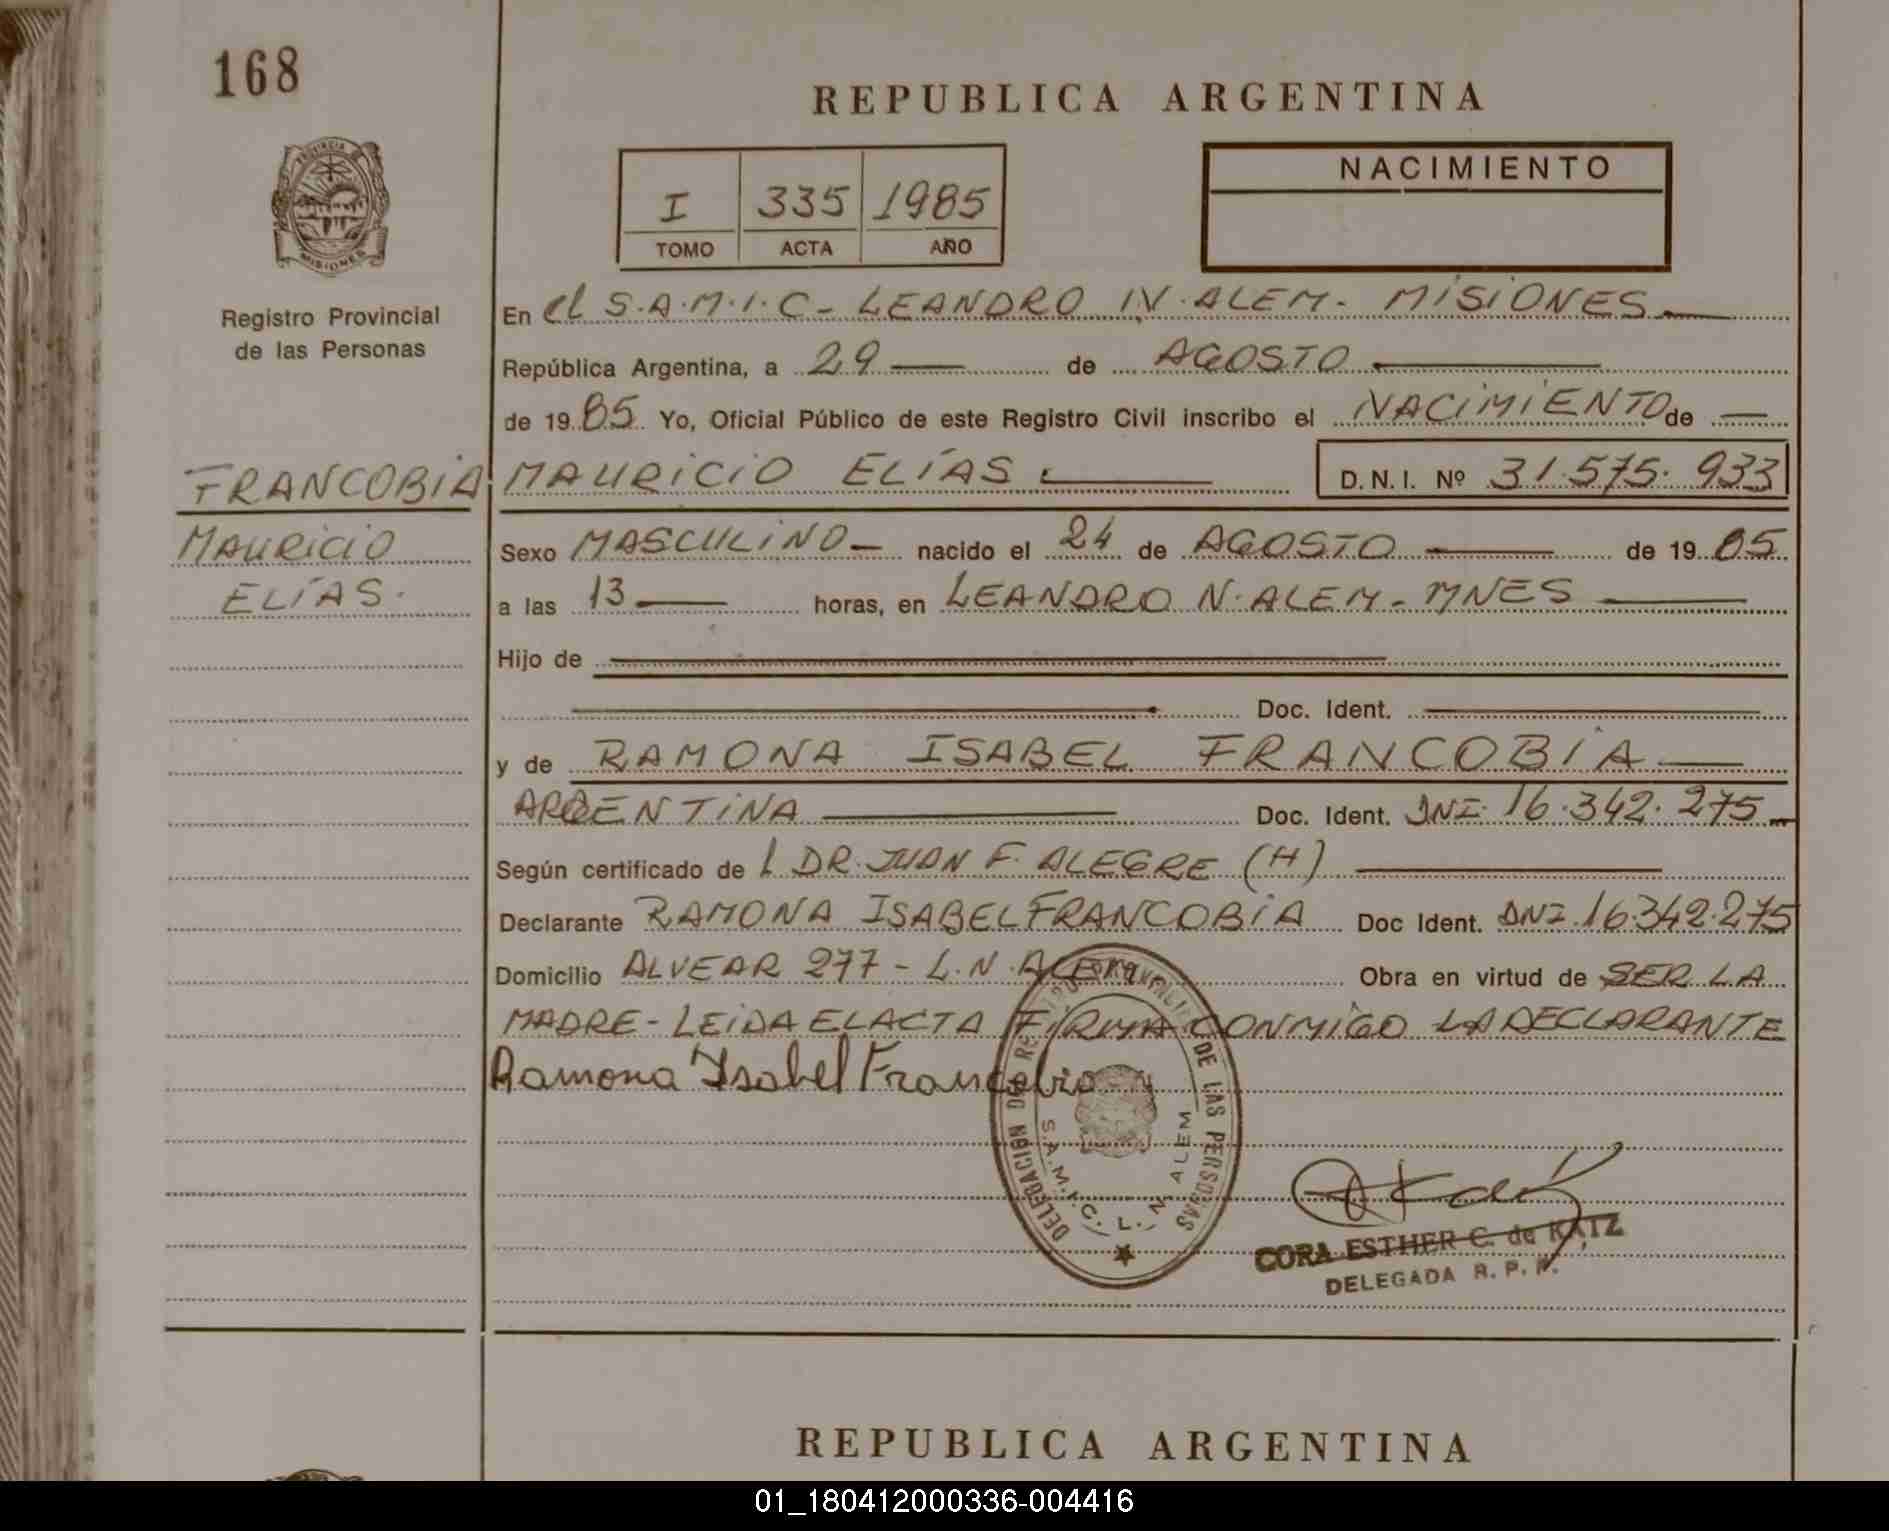 168
REPUBLICA ARGENTINA
NACIMIENTO
I 335 1985
TOMO ACTA AÑO
PROVINCIA
MISIONES
Registro Provincial
de las Personas
En el S.A.M.I.C - LEANDRO N. ALEM - MISIONES
República Argentina, a 29 de AGOSTO
de 19 85 Yo, Oficial Público de este Registro Civil inscribo el NACIMIENTO de
FRANCOBIA MAURICIO ELÍAS D.N.I. Nº 31.575.933
MAURICIO
ELÍAS.
Sexo MASCULINO - nacido el 24 de AGOSTO de 19 85
a las 13 horas, en LEANDRO N. ALEM - MNES
Hijo de
Doc. Ident.
y de RAMONA ISABEL FRANCOBIA
ARGENTINA Doc. Ident. DNI. 16.342.275
Según certificado de l DR. JUAN F. ALEGRE (H)
Declarante RAMONA ISABEL FRANCOBIA Doc Ident. DNI. 16.342.275
Domicilio ALVEAR 277 - L.N. ALEM. Obra en virtud de SER LA
MADRE - LEIDA EL ACTA FIRMA CONMIGO LA DECLARANTE
Ramona Isabel Francobia
DELEGACION DEL REGISTRO PROVINCIAL DE LAS PERSONAS
S.A.M.I.C. L. N. ALEM
CORA ESTHER C. de KATZ
DELEGADA R. P. P.
REPUBLICA ARGENTINA
01_180412000336-004416